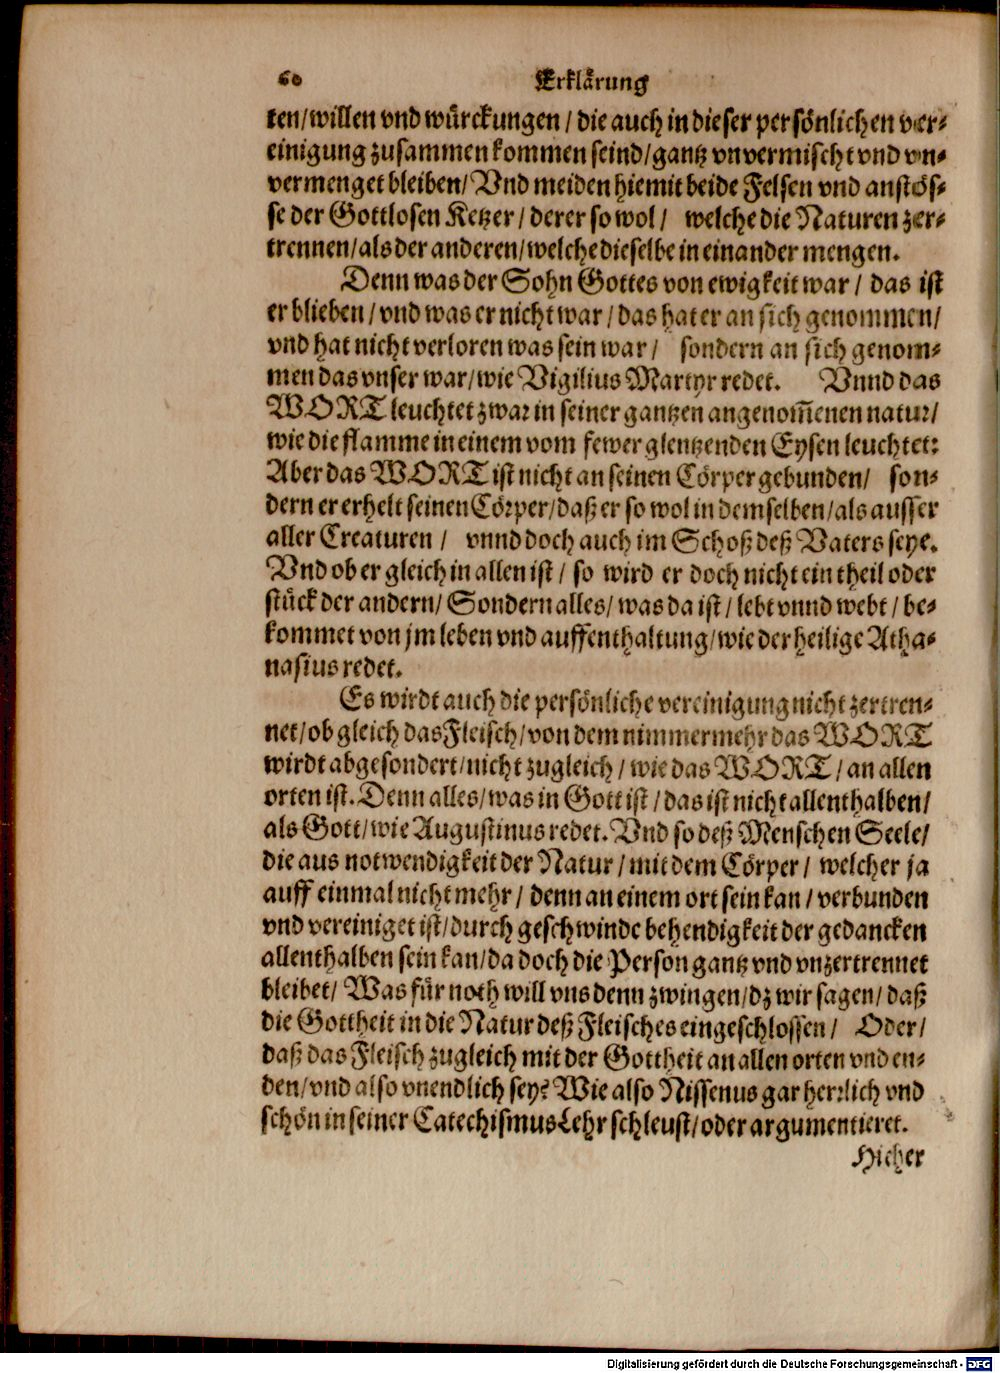 60 Erklärung
ten/willen vnd würckungen/ die auch in dieser persönlichen ver-
einigung zusammen kommen seind/ gantz vnvermischt vnd vn-
vermenget bleiben/ Vnd meiden hiemit beide Felsen vnd anstös-
se der Gottlosen Ketzer/ derer so wol/ welche die Naturen zer-
trennen/ als der anderen/ welche dieselbe in einander mengen.
Denn was der Sohn Gottes von ewigkeit war/ das ist
er blieben/ vnd was er nicht war/ das hat er an sich genommen/
vnd hat nicht verloren was sein war/ sondern an sich genom-
men das vnser war/ wie Vigilius Martyr redet. Vnnd das
WORT leuchtet zwar in seiner gantzen angenom̃enen natur/
wie die flamme in einem vom fewer glentzenden Eysen leuchtet:
Aber das WORT ist nicht an seinen Cörper gebunden/ son-
dern er erhelt seinen Cörper/ daß er so wol in demselben/ als ausser
aller Creaturen/ vnnd doch auch im Schoß deß Vaters seye.
Vnd ob er gleich in allen ist/ so wird er doch nicht ein theil oder
stück der andern/ Sondern alles/ was da ist/ lebt vnnd webt/ be-
kommet von jm leben vnd auffenthaltung/ wie der heilige Atha-
nasius redet.
Es wirdt auch die persönliche vereinigung nicht zertren-
net/ ob gleich das Fleisch/ von dem nimmermehr das WORT
wirdt abgesondert/ nicht zugleich/ wie das WORT/ an allen
orten ist. Denn alles/ was in Gott ist/ das ist nicht allenthalben/
als Gott/ wie Augustinus redet. Vnd so deß Menschen Seele/
die aus notwendigkeit der Natur/ mit dem Cörper/ welcher ja
auff einmal nicht mehr/ denn an einem ort sein kan/ verbunden
vnd vereiniget ist/ durch geschwinde behendigkeit der gedancken
allenthalben sein kan/ da doch die Person gantz vnd vnzertrennet
bleibet/ Was für noth will vns denn zwingen/ dz wir sagen/ daß
die Gottheit in die Natur deß Fleisches eingeschlossen/ Oder/
daß das Fleisch zugleich mit der Gottheit an allen orten vnd en-
den/ vnd also vnendlich sey? Wie also Nissenus gar herrlich vnd
schön in seiner Catechismus Lehr schleust/ oder argumentieret.
Hieher
Digitalisierung gefördert durch die Deutsche Forschungsgemeinschaft - DFG